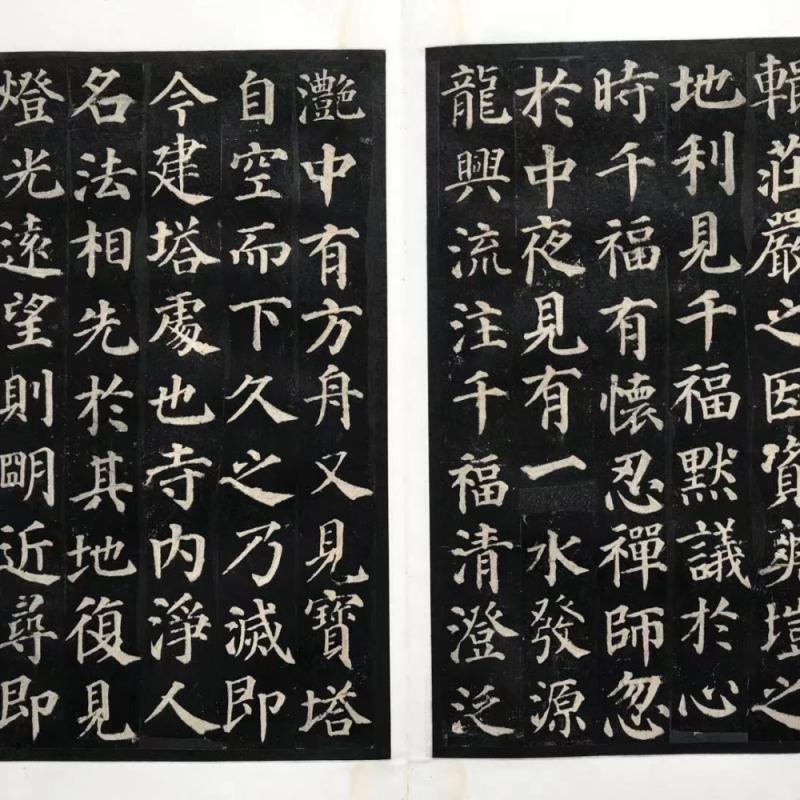 輯莊嚴之因資爽塏之
地利見千福默議於心
時千福有懷忍禪師忽
於中夜見有一水發源
龍興流注千福清澄泛
灩中有方舟又見寶塔
自空而下久之乃滅即
今建塔處也寺內淨人
名法相先於其地復見
燈光遠望則明近尋即